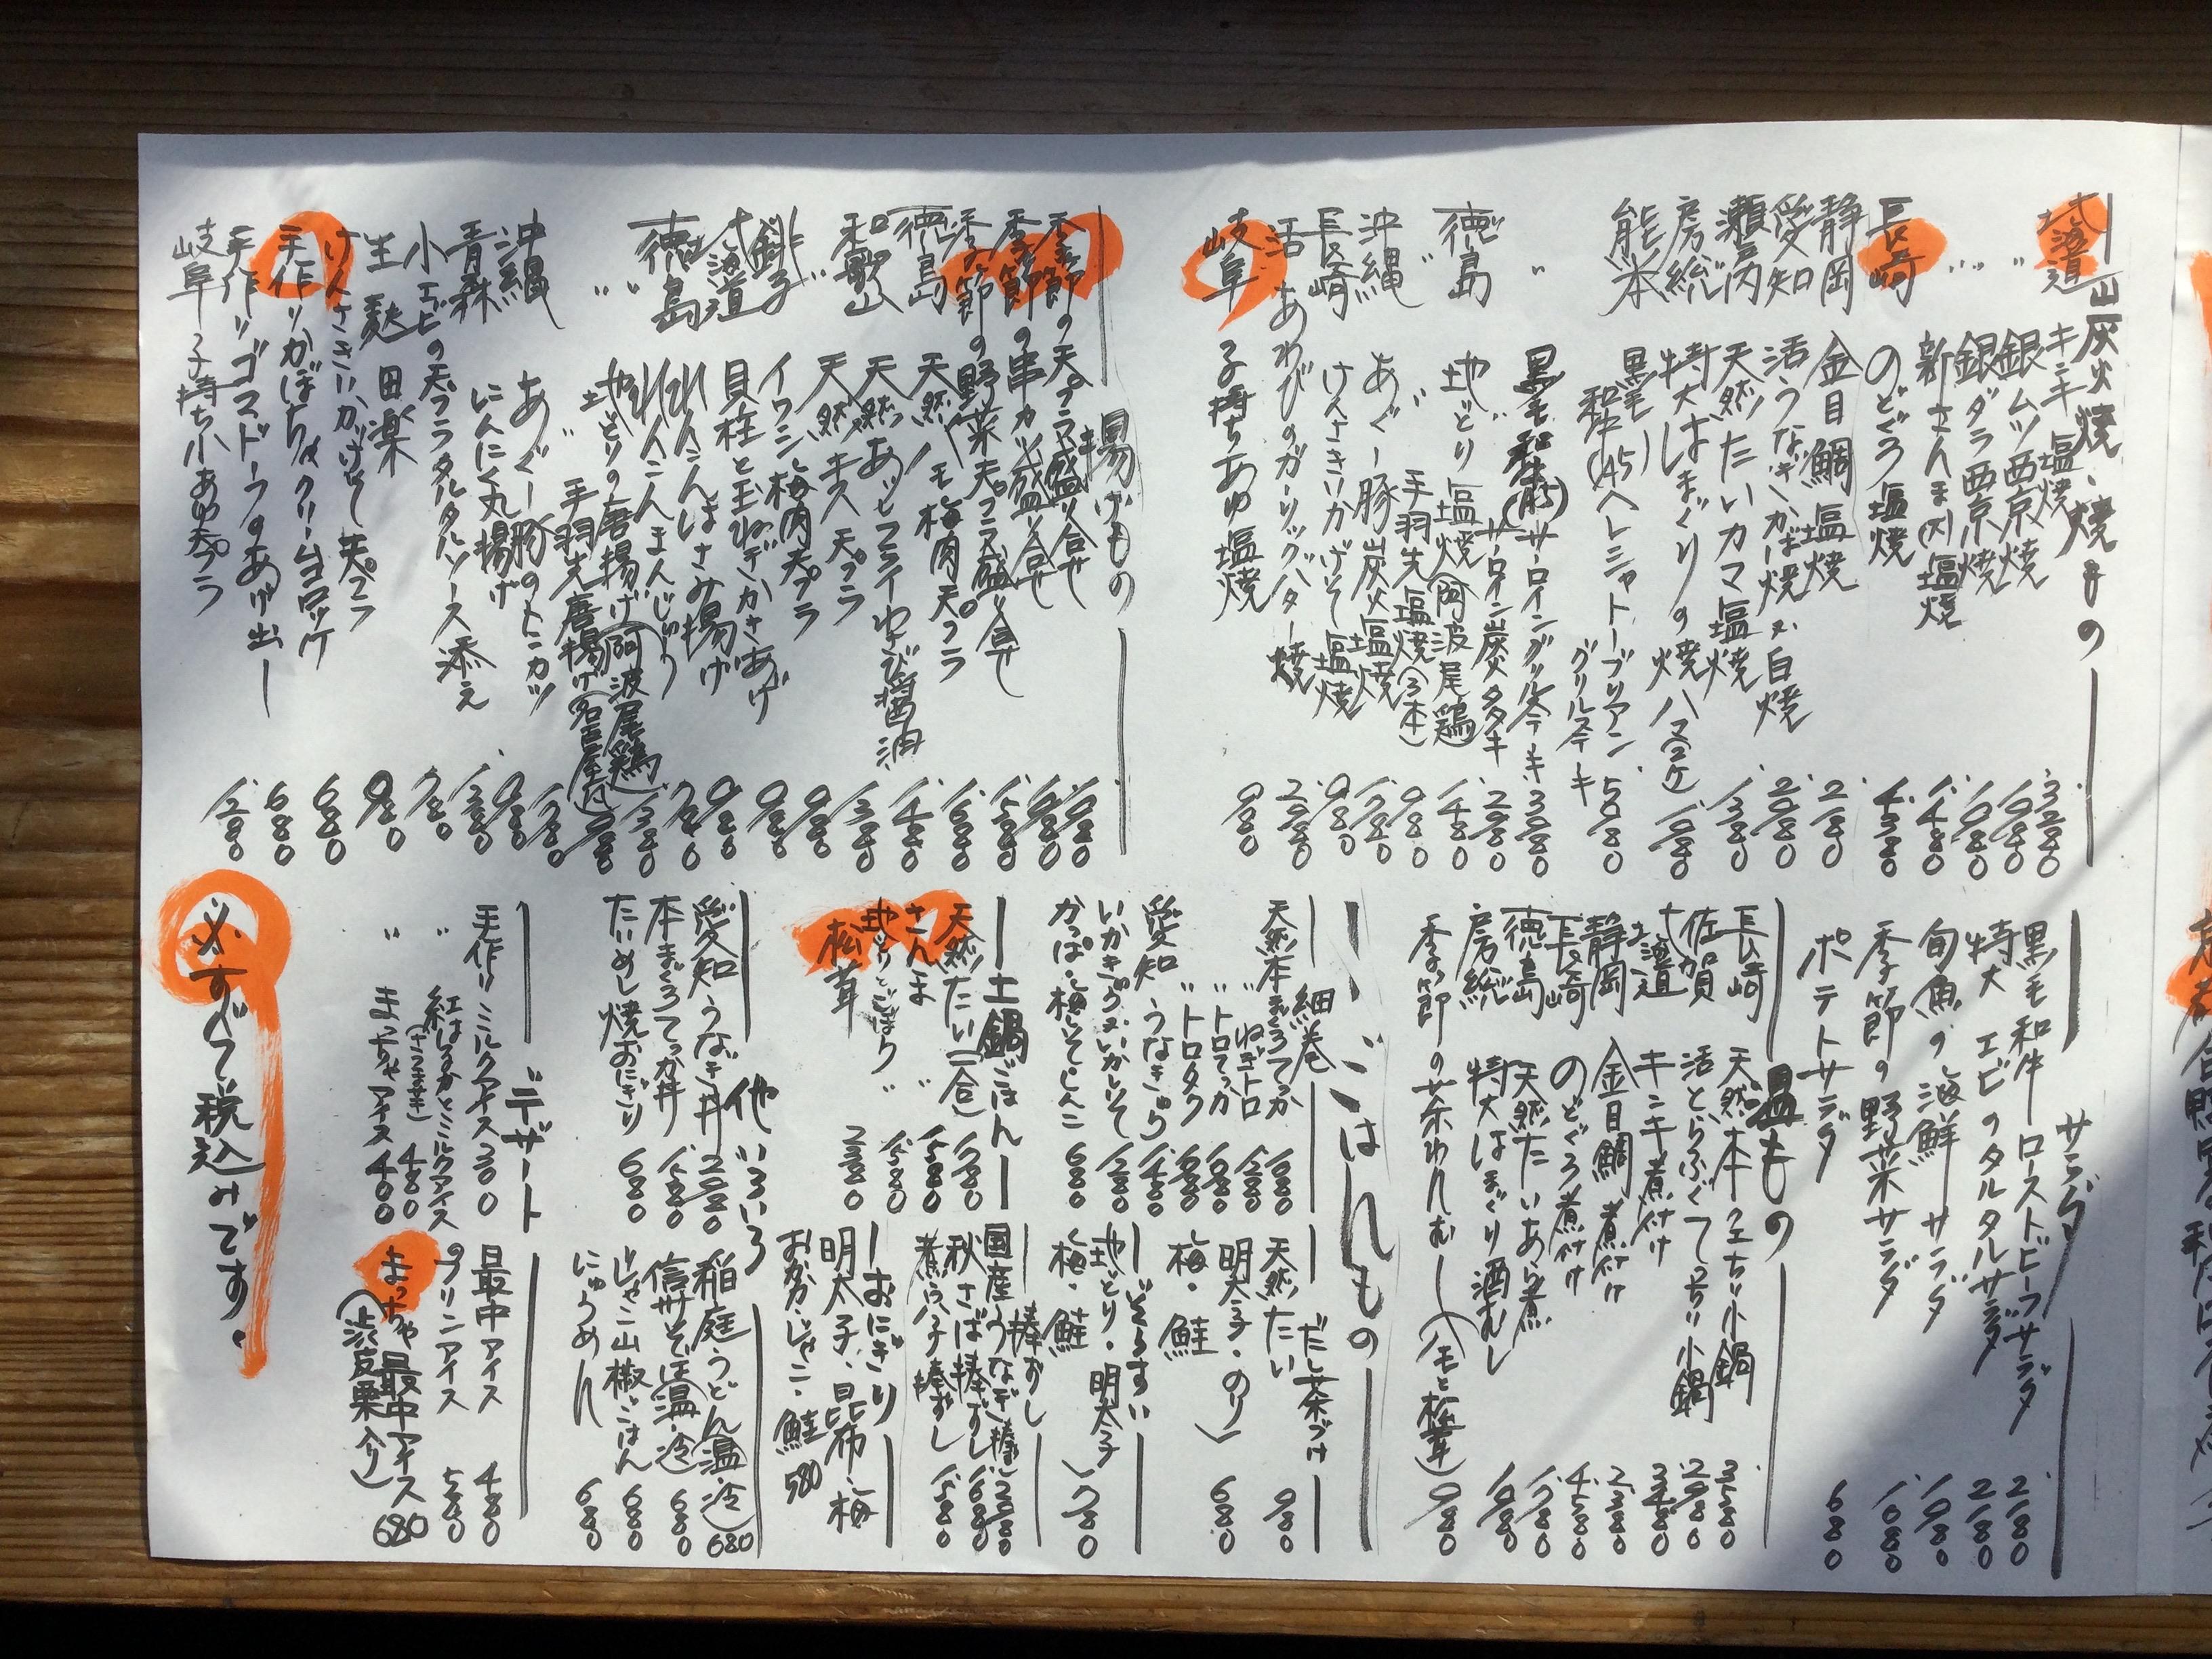 炭火焼・焼きもの
北海道 キンキ塩焼 3280
〃 銀ムツ西京焼 1980
〃 銀ダラ西京焼 1980
新さんま 塩焼 1480
長崎 のどぐろ塩焼 4380
静岡 金目鯛塩焼 2180
愛知 活うなぎかば焼又は白焼 2980
瀬戸内 天然たいカマ塩焼 1380
房総 特大はまぐりの焼ハマ(2ケ) 1980
熊本 黒毛和牛(A5)ヘレシャトーブリアングリルステーキ 5980
〃 黒毛和牛(A5)サーロイングリルステーキ 3980
サーロイン炭火タタキ 2980
徳島 地どり塩焼(阿波尾鶏) 1480
〃 〃 手羽先塩焼(3本) 980
沖縄 あぐー豚炭火塩焼 1780
長崎 けんさきいかげそ塩焼 980
活あわびのガーリックバター焼 2980
岐阜 子持ちあゆ塩焼 980
揚げもの
季節の天プラ盛り合せ 1980
季節の串カツ盛り合せ 1980
季節の野菜天プラ盛り合せ 1580
徳島 天然ハモ梅肉天プラ 1680
和歌山 天然あじフライわさび醤油 1480
〃 天然キス天プラ 1380
銚子 イワシ梅肉天プラ 980
北海道 貝柱と玉ねぎかきあげ 980
徳島 れんこんはさみ揚げ 980
〃 れんこんまんじゅう 780
地どりの唐揚げ(阿波尾鶏) 1380
〃 手羽先唐揚げ(名古屋風) 980
沖縄 あぐー豚のトンカツ 1780
青森 にんにく丸揚げ 980
小エビの天プラタルタルソース添え 1280
生麩田楽 780
けんさきいかげそ天プラ 980
手作りかぼちゃクリームコロッケ 680
手作りゴマドーフのあげ出し 680
岐阜 子持ち小あゆ天プラ 1280
サラダ
黒毛和牛ローストビーフサラダ 2180
特大エビのタルタルサラダ 2180
旬魚の海鮮サラダ 1980
季節の野菜サラダ 1080
ポテトサラダ 680
温もの
長崎 天然本クエちり小鍋 3580
佐賀 活とらふぐてっちり小鍋 2980
北海道 キンキ煮付け 3480
静岡 金目鯛煮付け 2380
長崎 のどぐろ煮付け 4580
徳島 天然たいあら煮 1780
房総 特大はまぐり酒むし 1980
季節の茶わんむし(ハモと松茸) 980
ごはんもの
細巻
天然本まぐろてっか 1080
〃 ねぎトロ 1280
〃 トロてっか 1680
〃 トロタク 1680
愛知 うなきゅう 1480
いかきゅう又はいかしそ 1280
かっぱ・梅しそ・しんこ 680
だし茶づけ
天然たい 980
明太子・のり
梅・鮭 680
ぞうすい
地どり・明太子
梅・鮭 780
土鍋ごはん
天然たい(一合) 1780
さんま 〃 1580
地どりとごぼう 〃 1580
松茸 〃 2380
棒ずし
国産うなぎ棒ずし 2980
秋さば棒ずし 1680
煮穴子棒ずし 1580
おにぎり
明太子・昆布・梅
おかか・じゃこ・鮭 580
他いろいろ
愛知うなぎ丼 2980
本まぐろてっか丼 1580
たいめし焼おにぎり 680
稲庭うどん(温・冷) 680
信州そば(温・冷) 680
じゃこ山椒ごはん 680
にゅうめん 680
デザート
手作りミルクアイス 300
〃 紅はるかとミルクアイス(さつまいも) 480
〃 まっちゃアイス 400
最中アイス 480
プリンアイス 580
まっちゃ最中アイス(渋皮栗入り) 680
※すべて税込みです。